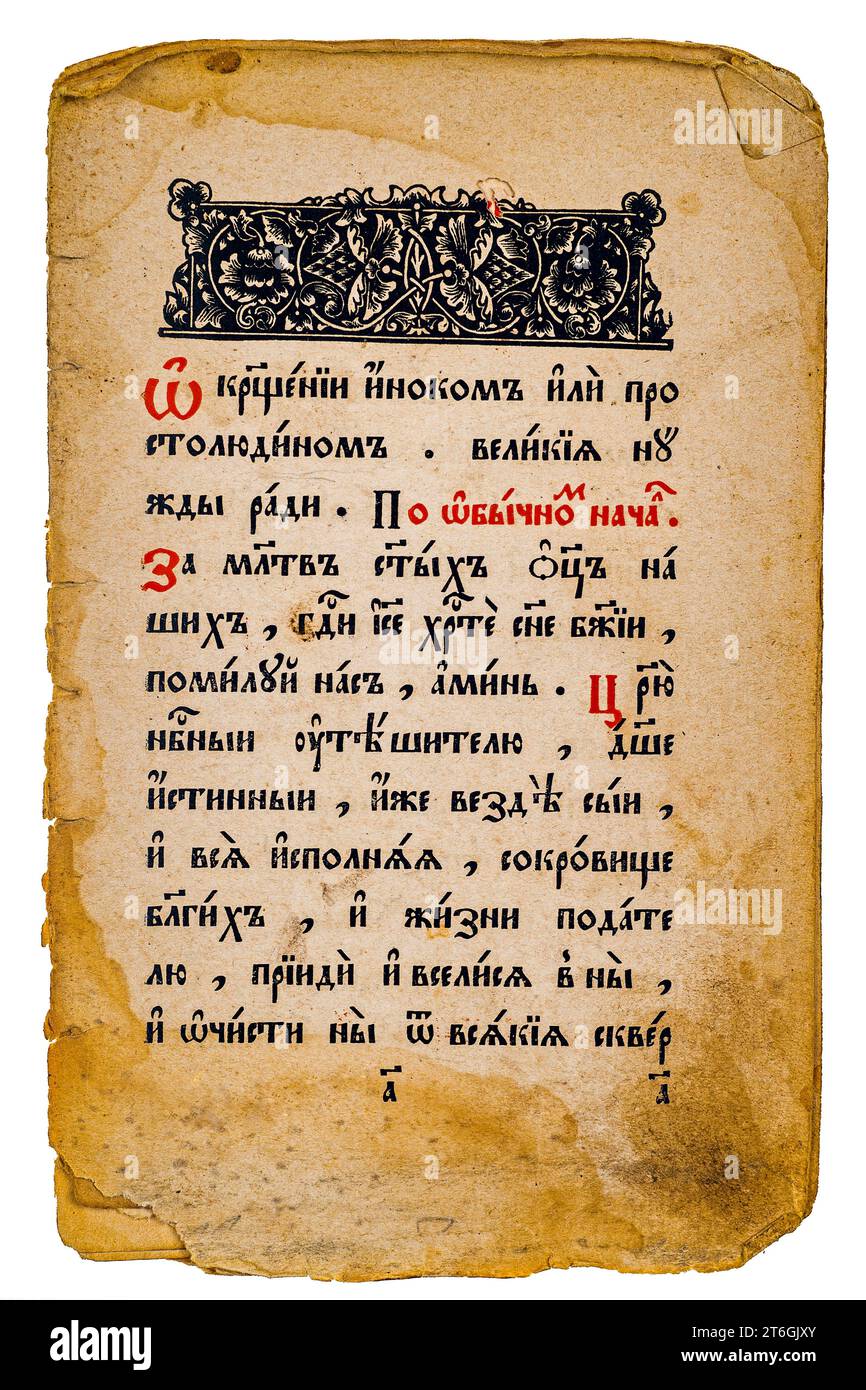 Ѡ҆ крⷭ҇ще́нїи и҆́нокомъ и҆лѝ про
столюди́номъ . вели́кїѧ нꙋ
жды ра́ди . По ѡ҆бы́чноⷨ начаⷧ҇ .
За мл҃твъ ст҃ы́хъ ѻ҆ц҃ъ на́
шихъ , гдⷭ҇и і҆с҃е хрⷭ҇тѐ сн҃е бж҃їи ,
поми́лꙋй на́съ , а҆ми́нь . Цр҃ю̀
нбⷭ҇ныи ᲂу҆тѣ́шителю , дш҃е
и҆́стинныи , и҆́же вездѣ̀ сы́и ,
и҆ всѧ̀ и҆сполнѧ́ѧ , сокро́вище
бл҃ги́хъ , и҆ жи́зни пода́те
лю , прїидѝ и҆ всели́сѧ в̾ ны̀ ,
и҆ ѡ҆чи́сти ны̀ ѿ всѧ́кїѧ скве́р
а҃ а҃
alamy
Image ID: 2T6GJXY
www.alamy.com